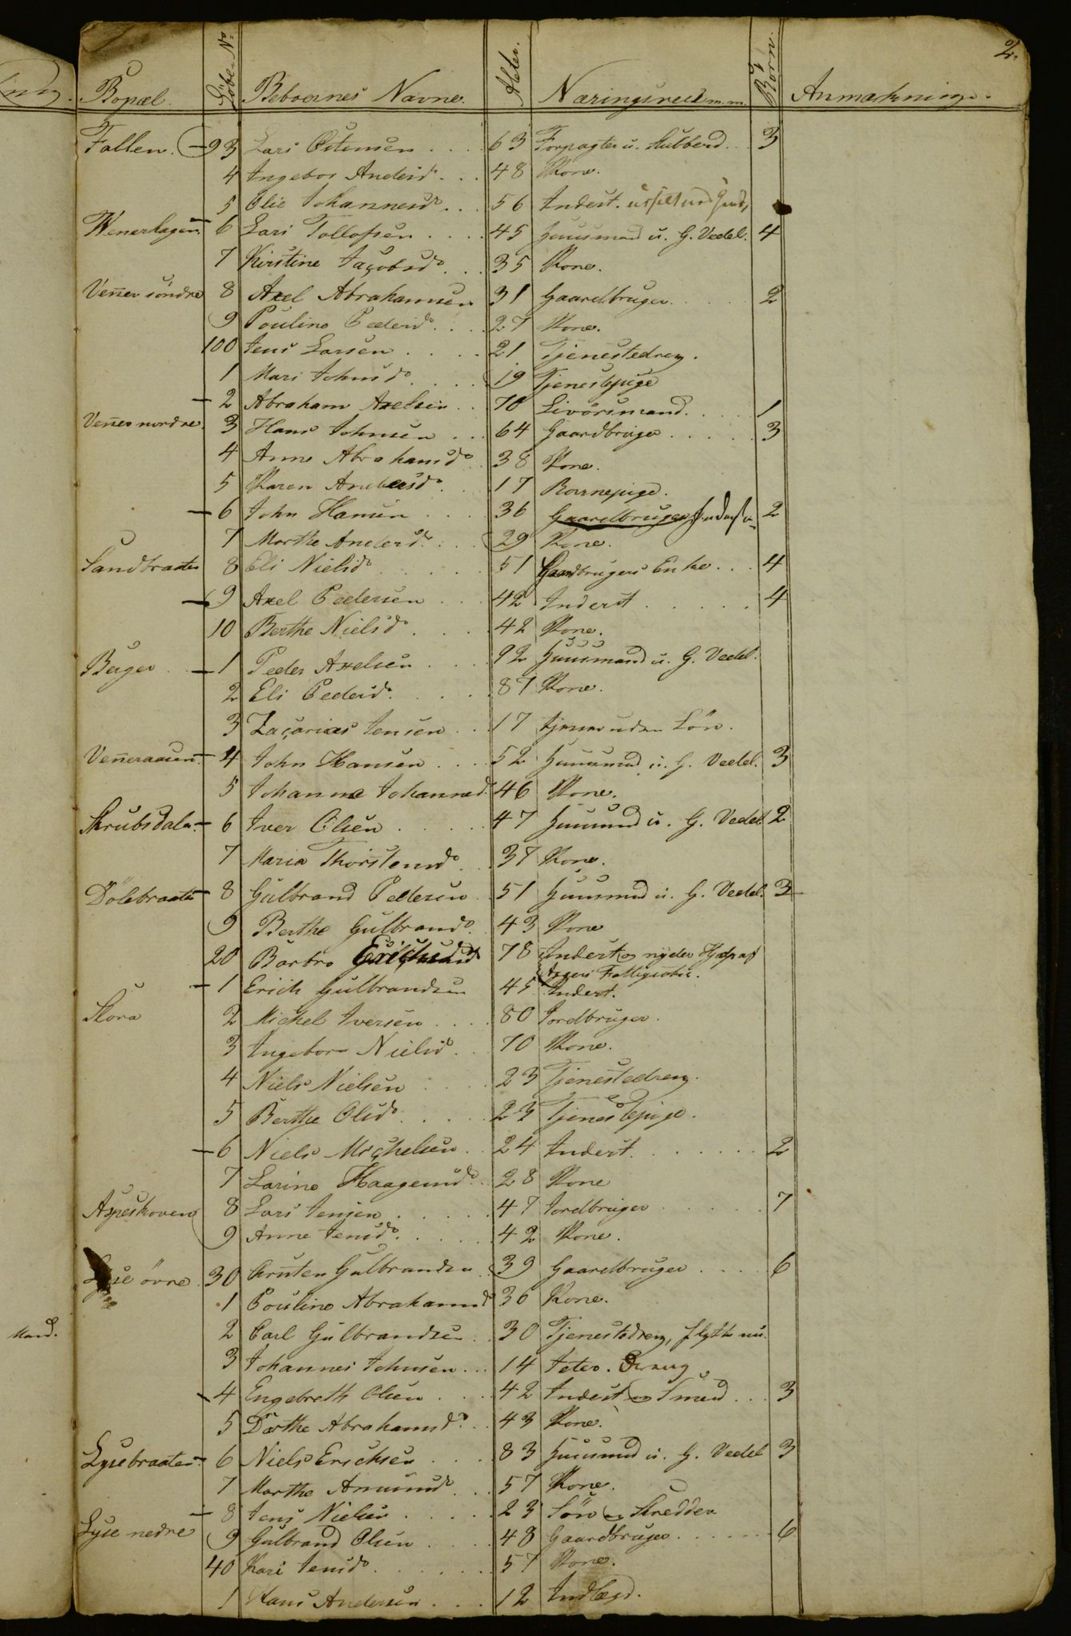 2.
Bopæl. Löbe No Beboernes Navne. Alder. Næringsvei m.m. Börn. Anmærkning.
Fallen. 93 Lars Östensen 63 Forpagter 3
4 Ingebor Andersdr 48 Kone.
5 Olie Johannesdr 56 Inderst.
Wennerhagen 6 Lars Tollofsen 45 Huusmand u. G. Vedel. 4
7 Kirstine Jacobsdr 35 Kone.
Venner söndre 8 Axel Abrahamsen 31 Gaardbruger 2
9 Pouline Pedersdr 27 Kone.
100 Jens Larsen 21 Tjenestedreng.
1 Mari Johnsdr 19 Tjenestepige
2 Abraham Axelsen 70 Livörsmand 1
Venner nordre 3 Hans Johnsen 64 Gaardbruger 3
4 Anne Abrahamsdr 38 Kone.
5 Karen Andersdr 17 Barnepige.
6 John Hansen 36 Gaardbruger Inderst 2
7 Marthe Andersdr 29 Kone.
Sandbraaten 8 Eli Nielsdr 51 Gaardbrugers Enke 4
9 Axel Pedersen 42 Inderst 4
10 Berthe Nielsdr 42 Kone.
Berger 1 Peder Axelsen 92 Huusmand u. G. Vedel.
2 Eli Pedersdr 87 Kone.
3 Zacarias Jensen 17 tjener uden Lön.
Venneraasen 4 John Hansen 52 Huusmand u. G. Vedel. 3
5 Johanne Johannesd 46 Kone.
Skrubsdalen 6 Iver Olsen 47 Huusmand u. G. Vedel 2
7 Maria Thorstensdr 37 Kone.
Dölebraaten 8 Gulbrand Pedersen 51 Huusmand u. G. Vedel. 3
9 Berthe Gulbrandsdr 43 Kone
20 Barbro Erichsdr 78 Inderst og nyder Hjelp af
Fattigcasse.
1 Erich Gulbrandsen 45 Inderst.
Flora 2 Michel Iversen 80 Jordbruger.
3 Ingebor Nielsdr 70 Kone.
4 Niels Nielsen 23 Tjenestedreng.
5 Berthe Olsdr 23 Tjenestepige.
6 Niels Michelsen 24 Inderst 2
7 Larine Haagensdr 28 Kone
Aspeskoven 8 Lars Jensen 47 Jordbruger 7
9 Anne Jensdr 42 Kone.
Lyse övre 30 Gulbrandsen 39 Gaardbruger 6
1 Pouline Abrahamsd 36 Kone.
2 Carl Gulbrandsen 30 Tjenestedreng,
3 Johannes Johnsen 14 Dreng
4 Engebreth Olsen 42 Inderst og Smed 3
5 Dorthe Abrahamsdr 43 Kone.
Lysebraaten 6 Niels Erichsen 83 Huusmand u. G. Vedel 3
7 Marthe Amundsdr 57 Kone.
8 Jens Nielsen 23 Sön og Skredder
Lyse nedre 9 Gulbrand Olsen 48 Gaardbruger 6
40 Kari Jensdr 57 Kone.
1 Hans Andersen 12 Indlægd.